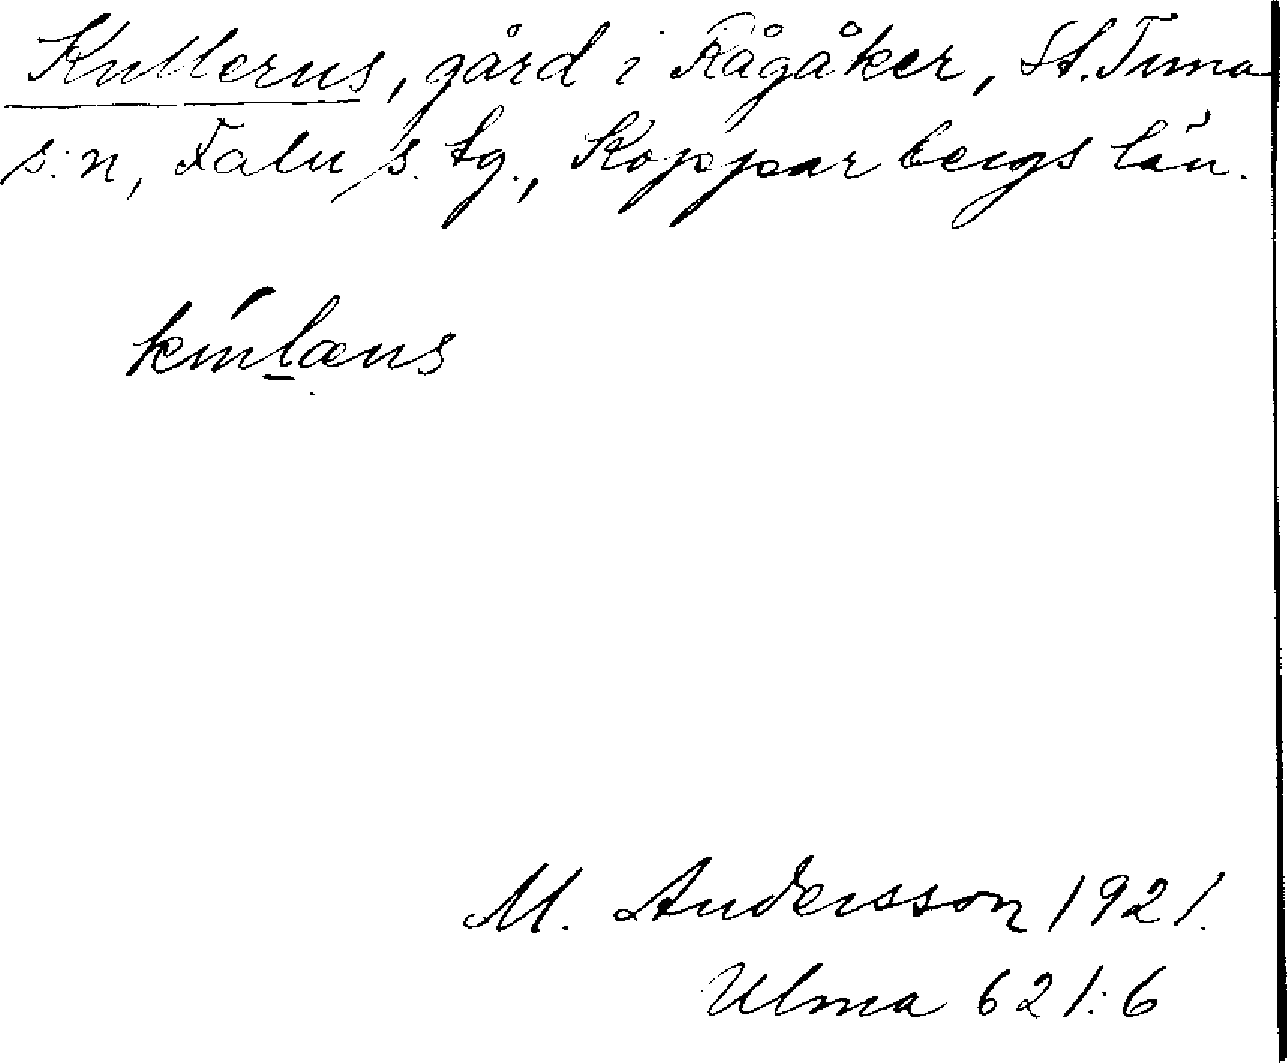 Knllerus, gård i Rågåker, St. Tuna
s:n, Falu s. tg., Kopparbergs län.
M. Andersson 1921.
Ulma 621:6